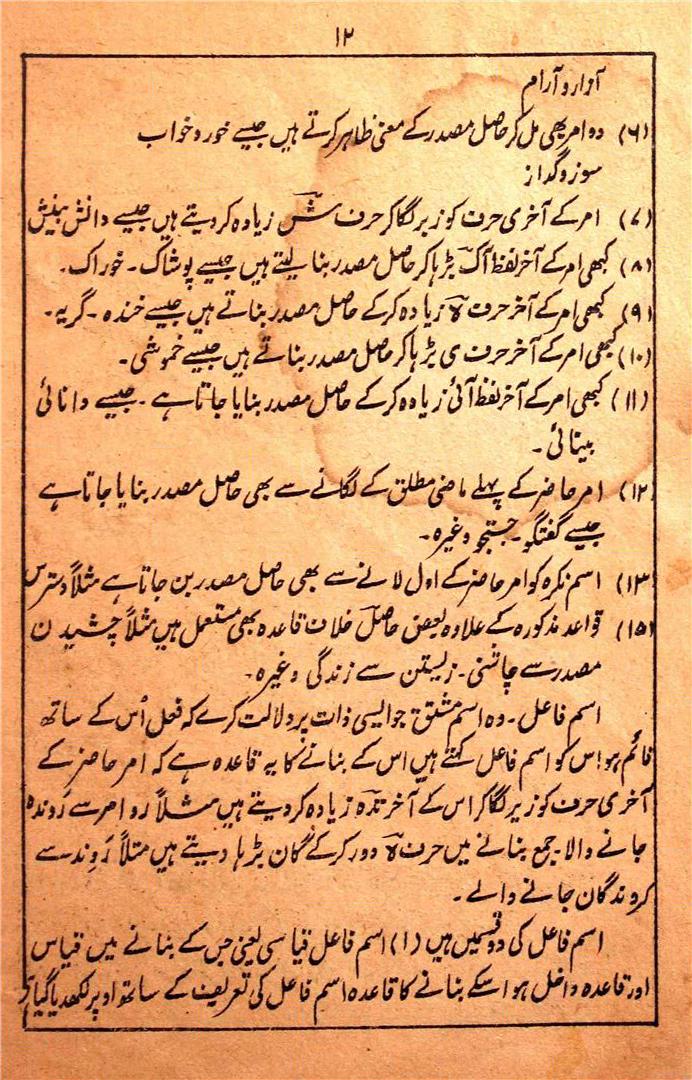 ۱۲
آزار و آرام
(۶) دو امر بھی مل کر حاصل مصدر کے معنی ظاہر کرتے ہیں جیسے خور و خواب
سوز و گداز
(۷) امر کے آخری حرف کو زیر لگا کر حرف ش زیادہ کر دیتے ہیں جیسے دانش بینش
(۸) کبھی امر کے آخر لفظ اک بڑہا کر حاصل مصدر بنا لیتے ہیں جیسے پوشاک۔ خوراک۔
(۹) کبھی امر کے آخر حرف ہ زیادہ کر کے حاصل مصدر بناتے ہیں جیسے خندہ۔ گریہ۔
(۱۰) کبھی امر کے آخر حرف ی بڑہا کر حاصل مصدر بناتے ہیں جیسے خموشی۔
(۱۱) کبھی امر کے آخر لفظ آئی زیادہ کر کے حاصل مصدر بنایا جاتا ہے۔ جیسے دانائی
بینائی۔
(۱۲) امر حاضر کے پہلے ماضی مطلق کے لگانے سے بھی حاصل مصدر بنایا جاتا ہے
جیسے گفتگو۔ جستجو وغیرہ۔
(۱۳) اسم نکرہ کو امر حاضر کے اول لانے سے بھی حاصل مصدر بن جاتا ہے مثلاً دسترس
(۱۵) قواعد مذکورہ کے علاوہ بعض حاصل خلاف قاعدہ بھی مستعمل ہیں مثلاً چشیدن
مصدر سے چاشنی۔ زیستن سے زندگی وغیرہ۔
اسم فاعل۔ وہ اسم مشتق جو ایسی ذات پر دلالت کرے کہ فعل اُس کے ساتھ
قائم ہو اس کو اسم فاعل کہتے ہیں اس کے بنانے کا یہ قاعدہ ہے کہ امر حاضر کے
آخری حرف کو زیر لگا کر اس کے آخر ندہ زیادہ کر دیتے ہیں مثلاً رو امر سے رَوندہ
جانے والا۔ جمع بنانے میں حرف ہ دور کر کے گان بڑہا دیتے ہیں مثلاً رَوِندہ سے
روندگان جانے والے۔
اسم فاعل کی دو قسمیں ہیں (۱) اسم فاعل قیاسی یعنی جس کے بنانے میں قیاس
اور قاعدہ داخل ہو اسکے بنانے کا قاعدہ اسم فاعل کی تعریف کے ساتھ اوپر لکھدیا گیا ہے